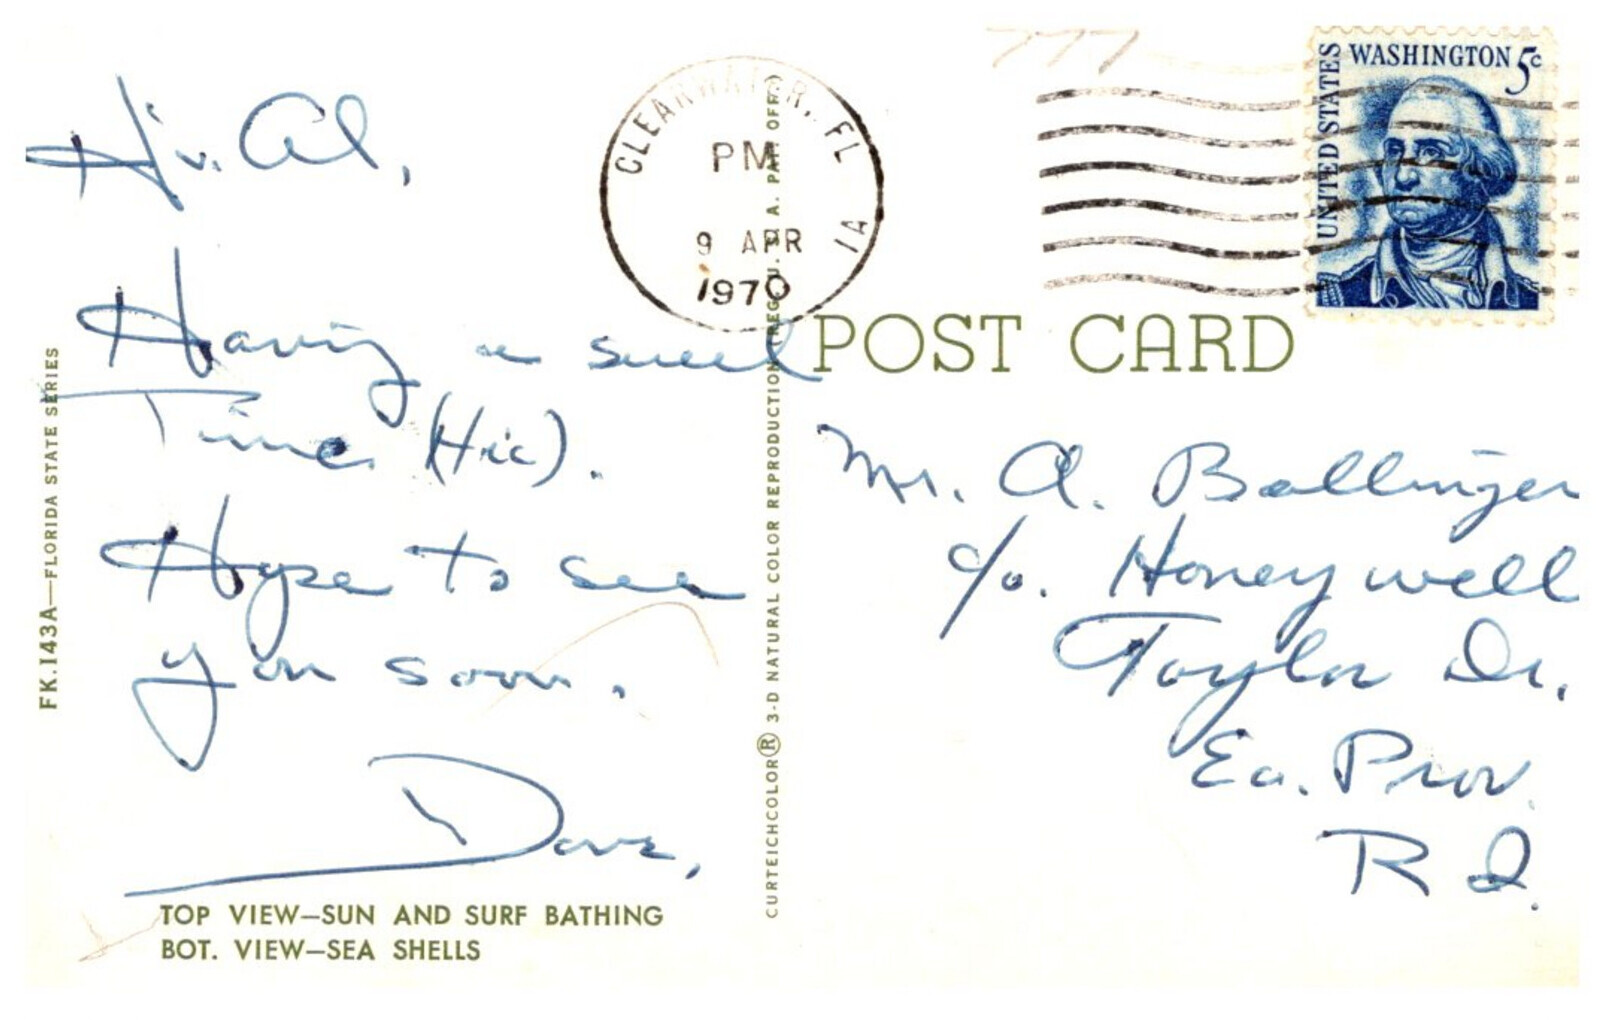 Hi. Al,
Having a swell
Time (Hic).
Hope to see
you soon.
Dave,
TOP VIEW—SUN AND SURF BATHING
BOT. VIEW—SEA SHELLS
FK.143A—FLORIDA STATE SERIES
CURTEICHCOLOR® 3-D NATURAL COLOR REPRODUCTION (REG. U.S.A. PAT. OFF.)
CLEARWATER, FLA
PM
9 APR
1970
UNITED STATES
WASHINGTON 5c
POST CARD
Mr. A. Ballinger
c/o. Honeywell
Taylor Dr.
Ea. Prov.
R I.